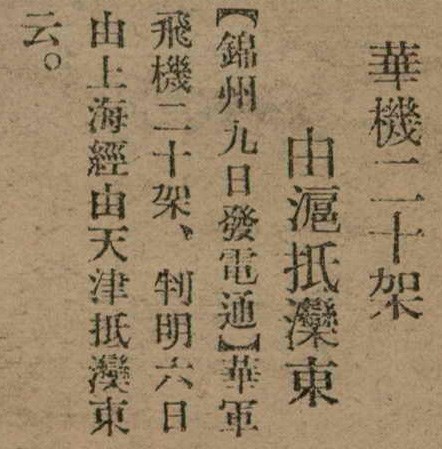 華機二十架
由滬抵灤東
【錦州九日發電通】華軍
飛機二十架、判明六日
由上海經由天津抵灤東
云。